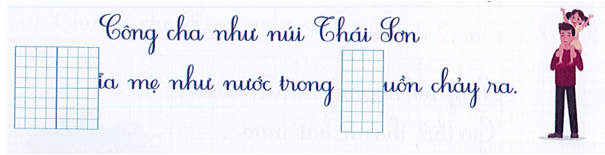 Công cha như núi Thái Sơn
ĩa mẹ như nước trong uồn chảy ra.